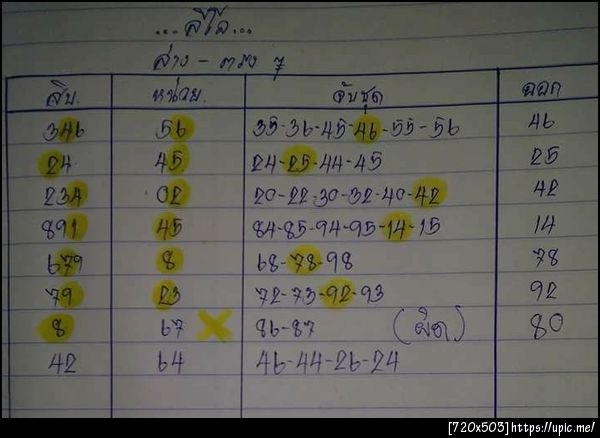 ...ลีโอ...
ล่าง - ตรง 7
สิบ. หน่วย. จับชุด ออก
346 56 35-36-45-46-55-56 46
24 45 24-25-44-45 25
234 02 20-22-30-32-40-42 42
891 45 84-85-94-95-14-15 14
679 8 68-78-98 78
79 23 72-73-92-93 92
8 67 86-87 (ผิด) 80
42 64 46-44-26-24
[720x503]https://upic.me/